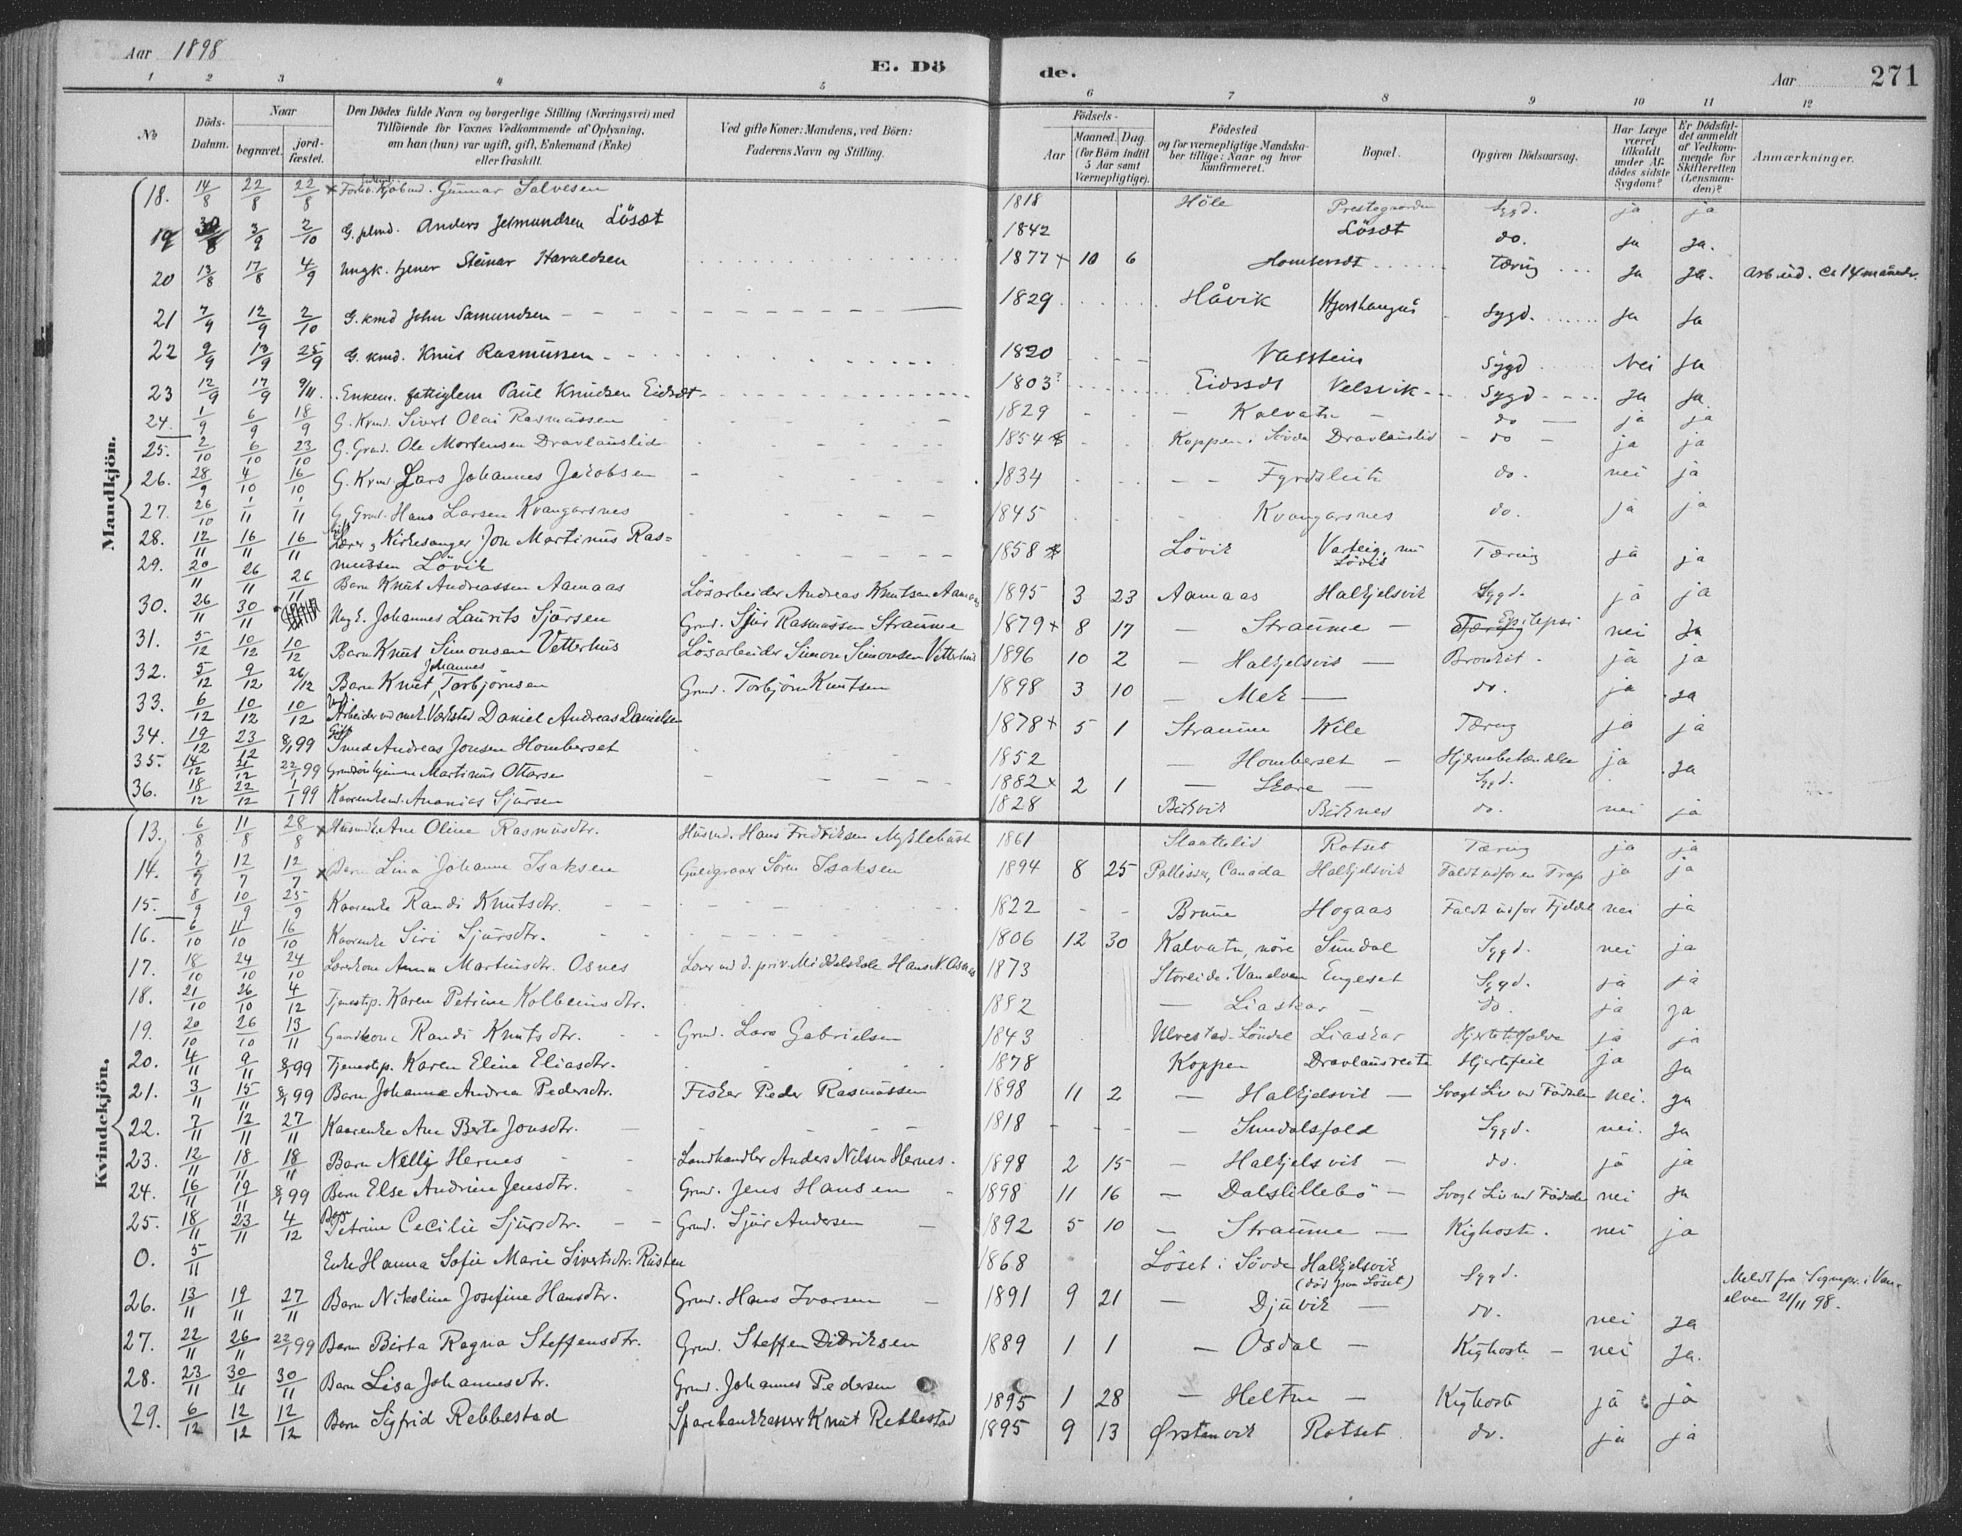 Aar 1898
E. Dö
de.
Aar
271
1 2 3 4 5 6 7 8 9 10 11 12
No
Döds-Datum.
Naar
begravet.
jord-fæstet.
Den Dödes fulde Navn og borgerlige Stilling (Næringsvei) med
Tilföiende for Voxnes Vedkommende af Oplysning,
om han (hun) var ugift, gift, Enkemand (Enke)
eller fraskilt.
Ved gifte Koner: Mandens, ved Börn:
Faderens Navn og Stilling.
Födsels-
Aar
Maaned. Dag.
(for Börn indtil
5 Aar samt
Værnepligtige).
Födested
og for værnepligtige Mandska-
ber tillige: Naar og hvor
konfirmeret.
Bopæl.
Opgiven Dödsaarsag.
Har Læge
været
tilkaldt
under Af-
dödes sidste
Sygdom?
Er Dödsfal-
det anmeldt
af Vedkom-
mende for
Skifteretten
(Lensman-
den)?
Anmærkninger.
Mandkjön.
18. 14/8 22/8 22/8 Gunnar Salvesen 1818 Höle Prestegaarden Sygd. ja ja
19 30/8 3/9 2/10 Anders Jetmundsen Lösæt 1842 Lösæt do. Ja Ja.
20 13/8 17/8 4/9 Ungk. tjener Steinar Haraldsen 1877 + 10 6 Homberset Tæring Ja Ja. Arb.ud. ca 14 måneder
21 7/9 12/9 2/10 G. kmd John Samundsen 1829 Håvik Hjorthaugnes Sygd. Ja Ja
22 9/9 13/9 25/9 G. kmd. Knut Rasmussen 1820 Vatstein Sygd Nei Ja
23 12/9 17/9 9/11. Enkem. fattiglem Paul Knudsen Eidsæt 1803? Eidssæt Velsvik Sygd Ja Ja
24. 1/9 6/9 18/9 G. Krmd. Sivert Olai Rasmussen 1829 Kalvatn do ja ja
25. 2/10 6/10 23/10 G. Grmd. Ole Mortensen Dravlauslid 1854 Koppen i Søvde Dravlauslid do ja ja
26. 28/9 4/10 16/10 G. Krmd. Lars Johannes Jakobsen 1834 Fyrdsleite do. nei ja
27. 26/10 1/11 1/11 G. Grmd. Hans Larsen Kvangarsnes 1845 Kvangarsnes do. ja ja
28. 12/11 16/11 16/11 Gift Lærer og Kirkesanger Jon Martinus Ras=
mussen Lövik 1858 Lövik Varteig, nu Lövik Tæring ja ja
29. 20/11 26/11 26/11 Barn Knut Andreassen Aamaas Lösarbeider Andreas Knutsen Aamaas 1895 3 23 Aamaas Halkjelsvik Sygd. ja ja
30. 26/11 30/11 Ungk. Johannes Laurits Sjursen Grmd. Sjur Rasmussen Straume 1879 + 8 17 Straume Tæring Epilepsi nei Ja
31. 5/12 10/12 10/12 Barn Knut Simonsen Vetterhus Lösarbeider Simon Simonsen Vetterhus 1896 10 2 Halkjelsvik Bronkit. ja ja
32. 5/12 9/12 26/12 Barn Knut Johannes Torbjørnsen Grmd. Torbjörn Knutsen 1898 3 10 Mek do. ja Ja
33. 6/12 10/12 10/12 Arbeider ved mek. Værksted Daniel Andreas Danielsen 1878 + 5 1 Straume Wile Tæring ja ja
34. 19/12 23/12 8/1 99 Gift Smed Andreas Jonsen Homberset 1852 Homberset Hjernebetændelse ja Ja
35. 14/12 21/12 22/1 99 Martinus Ottarsen 1882 + 2 1 Skare Sygd.
36. 18/12 22/12 1/1 99 Kaarenkem. Ananias Sjursen 1828 Birkvik Birknes do. nei ja
Kvindekjön.
13. 6/8 11/8 28/8 Ane Oline Rasmusdtr. Husmd. Hans Fredriksen Myklebust 1861 Staatelid Rotset Tæring ja ja
14. 7/7 12/7 12/7 Barn Lina Johanne Isaksen Guldgraver Sören Isaksen 1894 8 25 Pallisser, Canada Halkjelsvik Faldt udfor en Trap ja ja
15. 8/9 10/9 25/9 Kaarenke Randi Knutsdtr. 1822 Brune Hogaas Faldt udfor Fjeldet nei ja
16. 6/10 11/10 16/10 Kaarenke Siri Sjursdtr. 1806 12 30 Kalvatn, nöre Sundal Sygd. nei ja
17. 18/10 24/10 24/10 Lærerkone Anna Martinsdtr. Osnes Lærer ved d. priv. Middelskole Hans N. Osnes 1873 Storeide i Vanelven Engeset Sygd. ja ja
18. 21/10 26/10 4/12 Tjenestep. Karen Petrine Kolbeinsdtr. 1882 Liaskar do. ja ja
19. 20/10 26/10 13/11 Gaardkone Randi Knutsdtr. Grmd. Lars Gabrielsen 1843 Ulvestad Löndal Liaskar ja ja
20. 4/11 9/11 8/1 99 Tjenestep. Karen Eline Eliasdtr. 1878 Koppen Dravlausreite Hjertefeil ja Ja
21. 3/11 15/11 8/1 99 Barn Johanna Andrea Pedersdtr. Fisker Peder Rasmussen 1898 11 2 Halkjelsvik Svagt Liv ved Födselen nei. ja
22. 7/11 12/11 27/11 Kaarenke Ane Berte Jonsdtr. 1818 Sundalsfold Sygd. nei. Ja
23. 12/11 18/11 18/11 Barn Nelly Hernes Landhandler Anders Nilsen Hernes. 1898 2 15 Halkjelsvik do. ja ja
24. 16/11 19/11 8/1 99 Barn Else Andrine Jensdtr. Grmd. Jens Hansen 1898 11 16 Dalslillebö Svagt Liv ved Födselen nei Ja
25. 18/11 23/11 4/12 Barn Petrine Cecilie Sjursdtr. Grmd. Sjur Andersen 1892 5 10 Straume Kighoste. nei ja
0. 5/11 Enke Hanna Sofie Marie Sivertsdtr. Rusten 1868 Löset i Sövde Halkjelsvik (död paa Löset) Sygd. Meldt fra Sognepr. i Van-
elven 21/11 98.
26. 13/11 19/11 27/11 Barn Nikoline Josefine Hansdtr. Grmd. Hans Ivarsen 1891 9 21 Djuvik do. nei Ja
27. 22/11 26/11 22/1 99 Barn Birta Ragna Steffensdtr. Grmd. Steffen Didriksen 1889 1 1 Osdal Kighoste nei Ja.
28. 23/11 30/11 30/11 Barn Lisa Johannesdtr. Grmd. Johannes Pedersen 1895 1 28 Heltne Kighoste ja ja
29. 6/12 12/12 12/12 Barn Sigfrid Rebbestad Sparebankkasserer Knut Rebbestad 1895 9 13 Ørstenvik Rotset do. ja ja